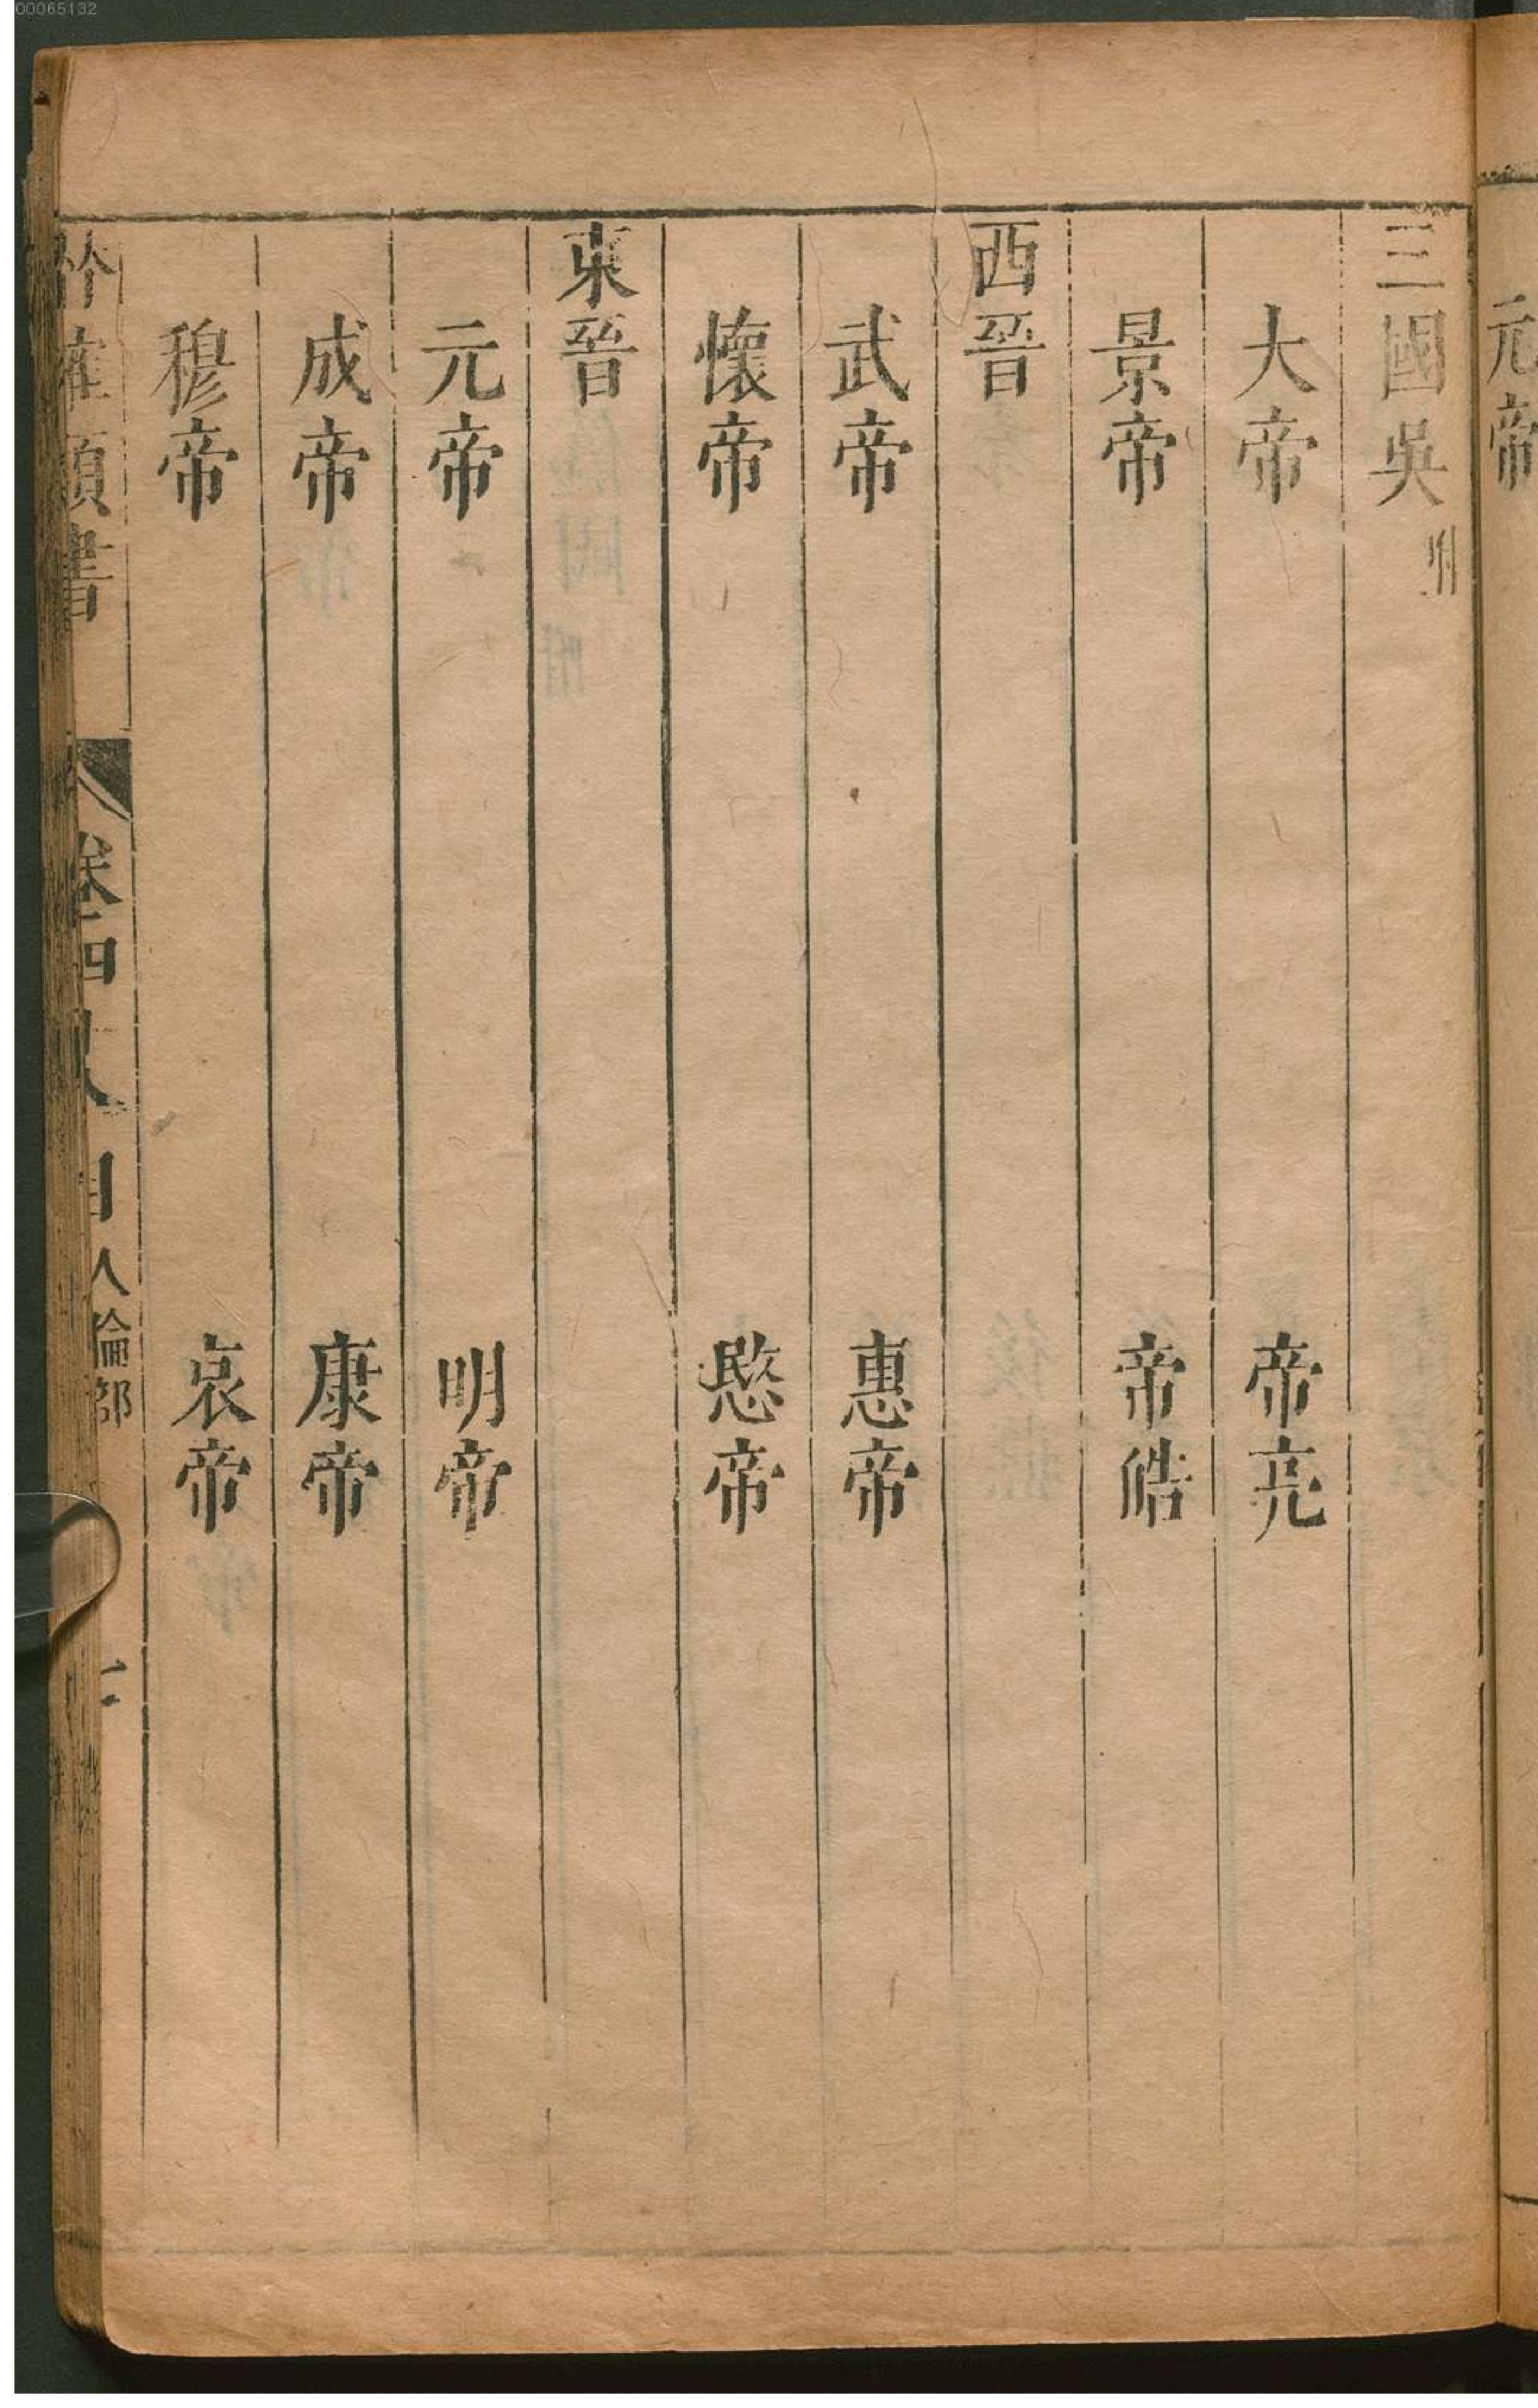 00065132
元帝
三國吳附
大帝 帝亮
景帝 帝皓
西晉
武帝 惠帝
懷帝 愍帝
東晉
元帝 明帝
成帝 康帝
穆帝 哀帝
類書 卷四 目 人倫部